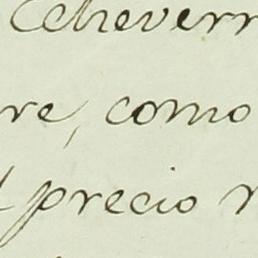 Echeverr
re, como
precio